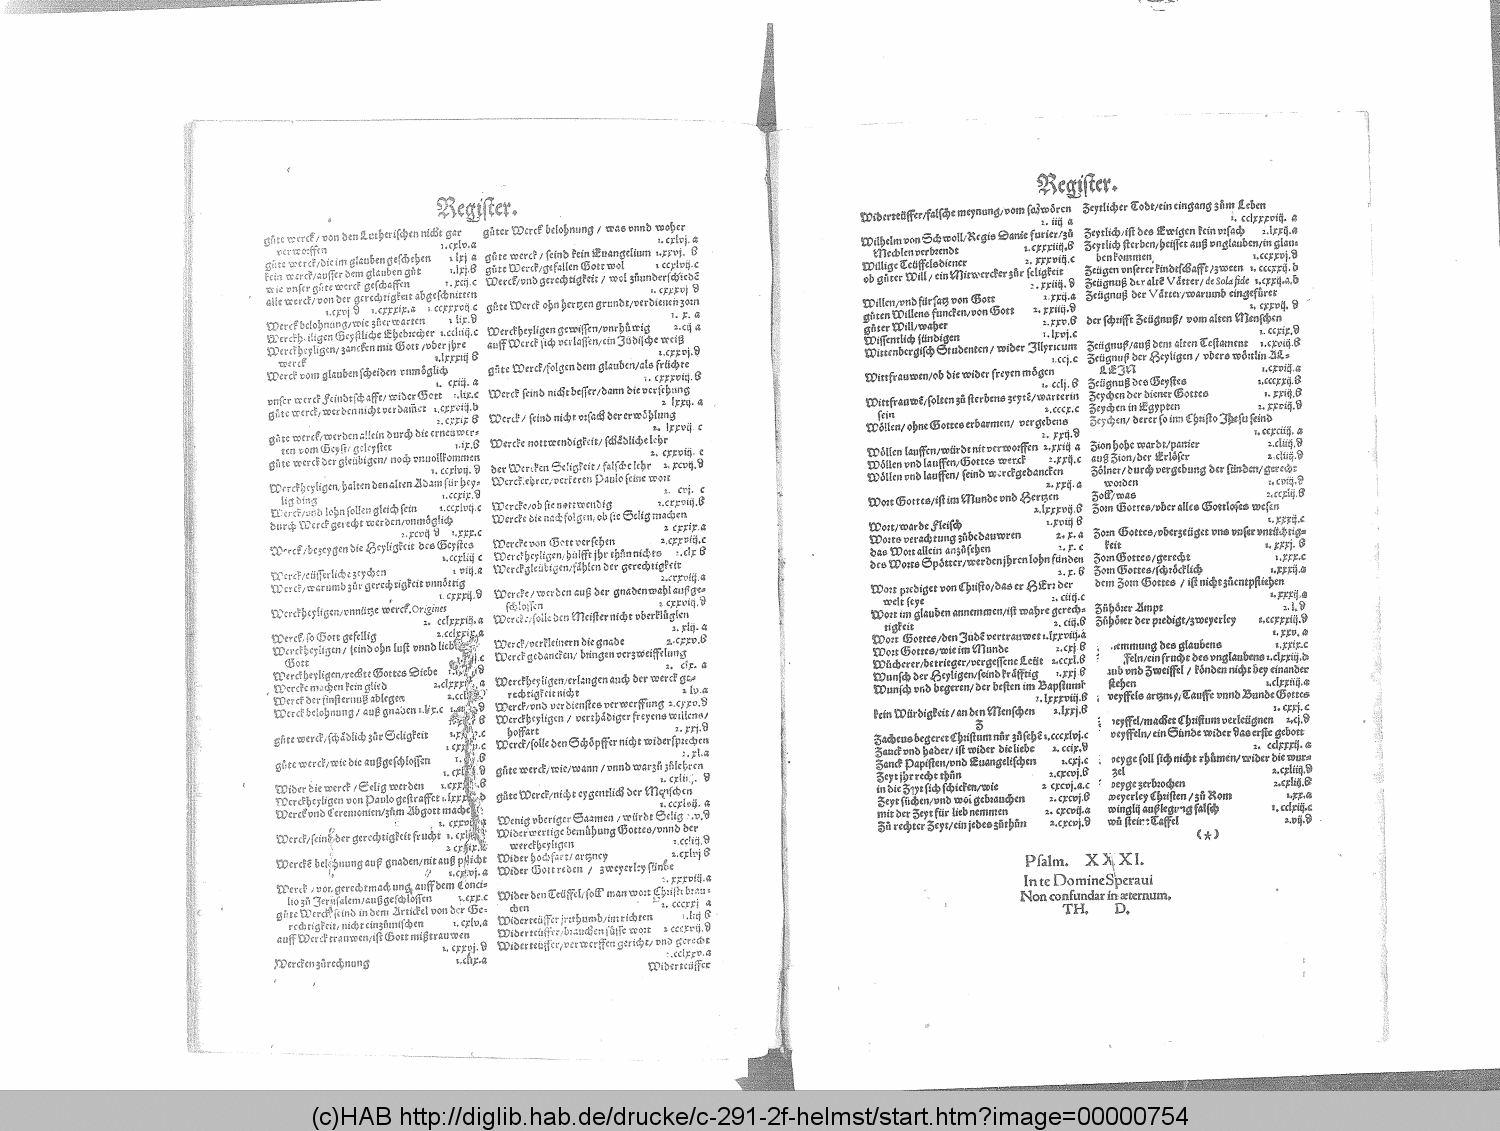 Register.
güte werck/ von den Lutherischen nicht gar
verworffen 1.cxlv.a
güte werck/die im glauben geschehen 1 lxj a
kein werck/ausser dem glauben güt 1.lxj.6
wie vnser güte werck geschaffen 1.xcij.c
alle werck/von der gerechtigkeit abgeschnitten
Werck belohnung/wie züerwarten 1 lix.9
Werckheiligen Geystliche Ehebrecher
Werckheyligen/zancken mit Gott /vber jhre
werck 1.lxxxiij 6
Werck vom glauben scheiden vnmöglich
1. cxij. a
vnser werck Feindtschafft/wider Gott 1.lix.c
güte werck/werden nicht verdamet 1.cxxviij.b
2.cxxix 6
güte werck/werden allein durch die ernewer-
ten vom Geyst/ geleystet 1.ix.6
güte werck der gleubigen/ noch vnuollkommen
1. ccxlvij. 9
Werckheyligen, halten den alten Adam für hey-
lig ding 1.ccxix.9
Werck/vnd lohn sollen gleich sein 1.ccxlvij.c
durch Werck gerecht werden/vnmöglich
2.xcvij 9 1.xxx.c
Werck/bezeygen die Heyligkeit des Geystes
1.ccxliij c
Werck/eüsserliche zeychen 1 viij.a
Werck/warumb zür gerechtigkeit vnnöttig
1. cxxxij.9
Werckheyligen/vnnütze werck. Origines
2. cclxxxiij.a
Werck, so Gott gefellig 2.cclxxix.a
Werckheyligen / seind ohn lust vnnd lieb
Gott
Werckheyligen/rechte Gottes Diebe
Wercke machen kein glied
Werck der finsternuß ablegen
Werck belohnung / auß gnaden 1.lix.c
güte werck/schädlich zür Seligkeit
güte werck/wie die außgeschlossen
Wider die werck / Selig werden
Werckheyligen von Paulo gestraffet
Werck vnd Ceremonien/züm Abgott mache
Werck/seind der gerechtigkeit frucht
Wercke belohnung auß gnaden/nit auß pflicht
Werck / vor gerechtmachung auff dem Conci-
lio zü Jerusalem/außgeschlossen 1.cxx.c
güte Werck seind in dem Artickel von der Ge-
rechtigkeit/ nicht einzümischen 1.cxlv.a
auff Werck trauwen/ist Gott mißtrauwen
1. cxxvj.9
Wercken zürechnung 1.clix.a
güter Werck belohnung / was vnnd woher
1.cxlvj. a
güte werck / seind kein Euangelium 1.xxvj. 6
güte Werck/gefallen Gott wol 1 ccxlvij.c
Werck/vnd gerechtigkeit / wol züunderscheide
1. cxxxvj 9
güte Werck ohn hertzen grundt/verdienen zorn
1. x. a
Werckheyligen gewissen/vnrhüwig 2.cij a
auff Werck sich verlassen/ein Jüdische weiß
1.cxxvj.9
güte Werck/folgen dem glauben/als früchte
1. cxxxviij.6
Werck seind nicht besser/dann die versehung
2 lxxij. a
Werck / seind nicht vrsach der erwöhlung
2. lxxvij c
Wercke nottwendigkeit/ schädliche lehr
2. cxxviij. c
der Wercken Seligkeit / falsche lehr 2. xcvij.9
Werck.ehrer/verkeren Paulo seine wort
2. cvj. c
Wercke/ob sie nottwendig 2.cxxviij.6
Wercke die nachfolgen, ob sie Selig machen
2 cxxix.a
Wercke von Gott versehen 2.cxxviij.c
Werckheyligen/hülfft jhr thün nichts 2.clx 6
Werckgleübigen/fählen der gerechtigkeit
2.cxxviij.a
Wercke/ werden auß der gnadenwahl außge-
schlossen 2 cxxviij.9
Wercke/solle den Meister nicht vberklüglen
2. xlij. a
Werck/verkleinern die gnade 2.cxxv.6
Werck gedancken/ bringen verzweiffelung
2. cix. a
Werckheyligen/erlangen auch der werck ge-
rechtigkeit nicht 2 lv.a
Werck/vnd verdienstes verwerffung 2.cxxv.9
Werckheyligen / verthädiger freyens willens/
hoffart 2. xxj.9
Werck/solle den Schöpffer nicht widersprechen
2.xl.a
güte werck/wie/wann / vnnd warzü zülehren
güte Werck/nicht eygentlich der Menschen
1.ccxlvij. a
Wenig vberiger Saamen / würdt Selig
Widerwertige bemühung Gottes/vnnd der
werckheyligen 1.ccliij.9
Wider hochfart/ artzney 2.cxlvj 6
Wider Gott reden / zweyerley sünde
2. xxxviij.a
Wider den Teüffel/soll man wort Christi brau-
chen 2. ccccxj a
Widerteüffer jrrthumb/im richten
Widerteüffer/brauchen füsse wort 2 cccxvij.9
Widerteüffer/verwerffen gericht/ vnd gerecht
Widerteüffer
Register.
Widerteüffer/falsche meynung/vom schwören
2. iiij a
Wilhelm von Schwoll/Regis Danie furier/zü
Mechlen verbrendt 1.cxxxiiij.6
Willige Teüffelsdiener 2. xxxviij.c
ob güter Will / ein Mitwercker zür seligkeit
2. xxiiij. 9
Willen/vnd fürsatz von Gott 2.xxij.a
güten Willens funcken/von Gott 2. xxiiij.9
güter Will/waher 2.xxv.6
Wissentlich sündigen 1.lxvj.c
Wittenbergisch Studenten/ wider Illyricum
1.ccj.c
Wittfrauwen/ob die wider freyen mögen
1. cclj. 6
Wittfrauwē/solten zü sterbens zeytē/warterin
sein 2.cccx.c
Wöllen/ ohne Gottes erbarmen/ vergebens
2. xxij.9
Wöllen lauffen/würdt nit verworffen 2.xxiij a
Wöllen vnd lauffen/Gottes werck 2.xxij.c
Wöllen vnd lauffen/ seind werckgedancken
2.xxij.a
Wort Gottes/ist im Munde vnd Hertzen
2.lxxxvij.6
Wort/warde Fleisch 1.xviij 6
Wortes verachtung zübedauwren 2. x.a
das Wort allein anzüsehen 2. x. c
des Worts Spötter/werden jhren lohn finden
2. x. 6
Wort prediget von Christo/das er HErr der
welt seye 2. ciiij.c
Wort im glauben annemmen/ist wahre gerech-
tigkeit 2. ciij.6
Wort Gottes/den Judē vertrauwet 1.lxxviij.a
Wort Gottes/wie im Munde 2.cxj 6
Wücherer/betrieger/vergessene Leüt 2.ccxl.6
Wunsch der Heyligen/seind kräfftig 1. cxj 6
Wunsch vnd begeren/der besten im Bapstumb
1.lxxxviij.6
kein Würdigkeit/an den Menschen 2.lxxj.6
Z
Zacheus begeret Christum nür züsehē 1.cccxlvj.c
Zanck vnd hader/ ist wider die liebe 2. ccix.9
Zanck Papisten/vnd Euangelischen 1.cxj.c
Zeyt jhr recht thün 2.cxcvj.6
in die Zeyt sich schicken/wie 2 cxcvj.a.c
Zeyt süchen/vnd wol gebrauchen 2. cxcvj.6
mit der Zeyt für lieb nemmen 2. cxcvij.a
Zü rechter Zeyt/ein jedes züthün 2.cxcvj.9
Zeytlicher Todt/ein eingang züm Leben
1. cclxxxviij. a
Zeytlich/ist des Ewigen kein vrsach 2.lxxij.a
Zeytlich sterben/heisset auß vnglauben/in glau
ben kommen 1.ccxxvj.9
Zeügen vnserer kindtschafft/zween 1. ccccxxij.b
Zeügnuß der alte Vätter/ de Sola fide 1.cxxij.a.b
Zeügnuß der Vätter/warumb eingefüret
1. cxxvij. 9
der schrifft Zeügnuß/ vom alten Menschen
2. ccxix.9
Zeügnuß/auß dem alten Testament 1.cxviij.6
Zeügnuß der Heyligen / vbers wörtlin AL-
LEIN 1.cxviij.a
Zeügnuß des Geystes 1.cccxxij.6
Zeychen der diener Gottes 1. xxij.6
Zeychen in Egypten 2. xxviij.9
Zeychen/ derer so im Christo Jhesu seind
1. ccxciiij. a
Zion hohe wardt/panier 2.cliij.9
auß Zion/der Erlöser 2.cliij.9
Zölner/durch vergebung der sünden/gerecht
worden 1. cviij.9
Zoll/was 2.ccxlij.6
Zorn Gottes/vber alles Gottloses wesen
1.xxxij.c
Zorn Gottes/vberzeüget vns vnser vntüchtig-
keit 1. xxxj. 6
Zorn Gottes/gerecht 1.xxx.c
Zorn Gottes/schröcklich 1.xxxij.a
dem Zorn Gottes / ist nicht züentpfliehen
1.xxxij.a
Zühörer Ampt 2.l.9
Zühörer der predigt/zweyerley 1.ccxxxiij.6
1.xxv. a
emmung des glaubens 1.xxix.c
feln/ein frucht des vnglaubens 1.clxxiij.b
aub vnd Zweiffel / könden nicht bey einander
stehen 1.clxxiij.a
veyffels artzney/Tauffe vnnd Bunde Gottes
1. cxxj.c
veyffel/machet Christum verleügnen 2.cj.9
veyffeln/ ein Sünde wider das erste gebott
2. cclxxxij. a
veyge soll sich nicht rhümen/wider die wur-
zel 2.cxliiij.9
veyge zerbrochen 2.cxliij.6
weyerley Christen/ zü Rom 1.xx.a
winglij außlegung falsch 1. cclxiij.c
wü steine Taffel 2.vij.9
(*)
Psalm. XXXI.
In te Domine Speraui
Non confundar in æternum.
TH. D.
(c)HAB http://diglib.hab.de/drucke/c-291-2f-helmst/start.htm?image=00000754